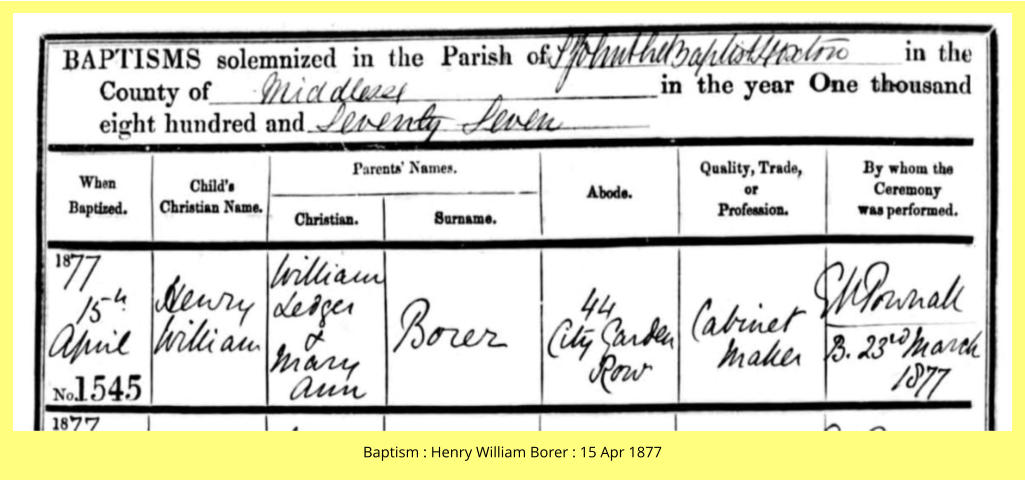 BAPTISMS solemnized in the Parish of St John the Baptist Hoxton in the
County of Middlesex in the year One thousand
eight hundred and Seventy Seven
When
Baptized.
Child's
Christian Name.
Parents' Names.
Christian.
Surname.
Abode.
Quality, Trade,
or
Profession.
By whom the
Ceremony
was performed.
1877
15th
April
No. 1545
Henry
William
William
Ledger
&
Mary
Ann
Borer
44
City Garden
Row
Cabinet
Maker
Pownall
B. 23rd March
1877
1877
Baptism : Henry William Borer : 15 Apr 1877